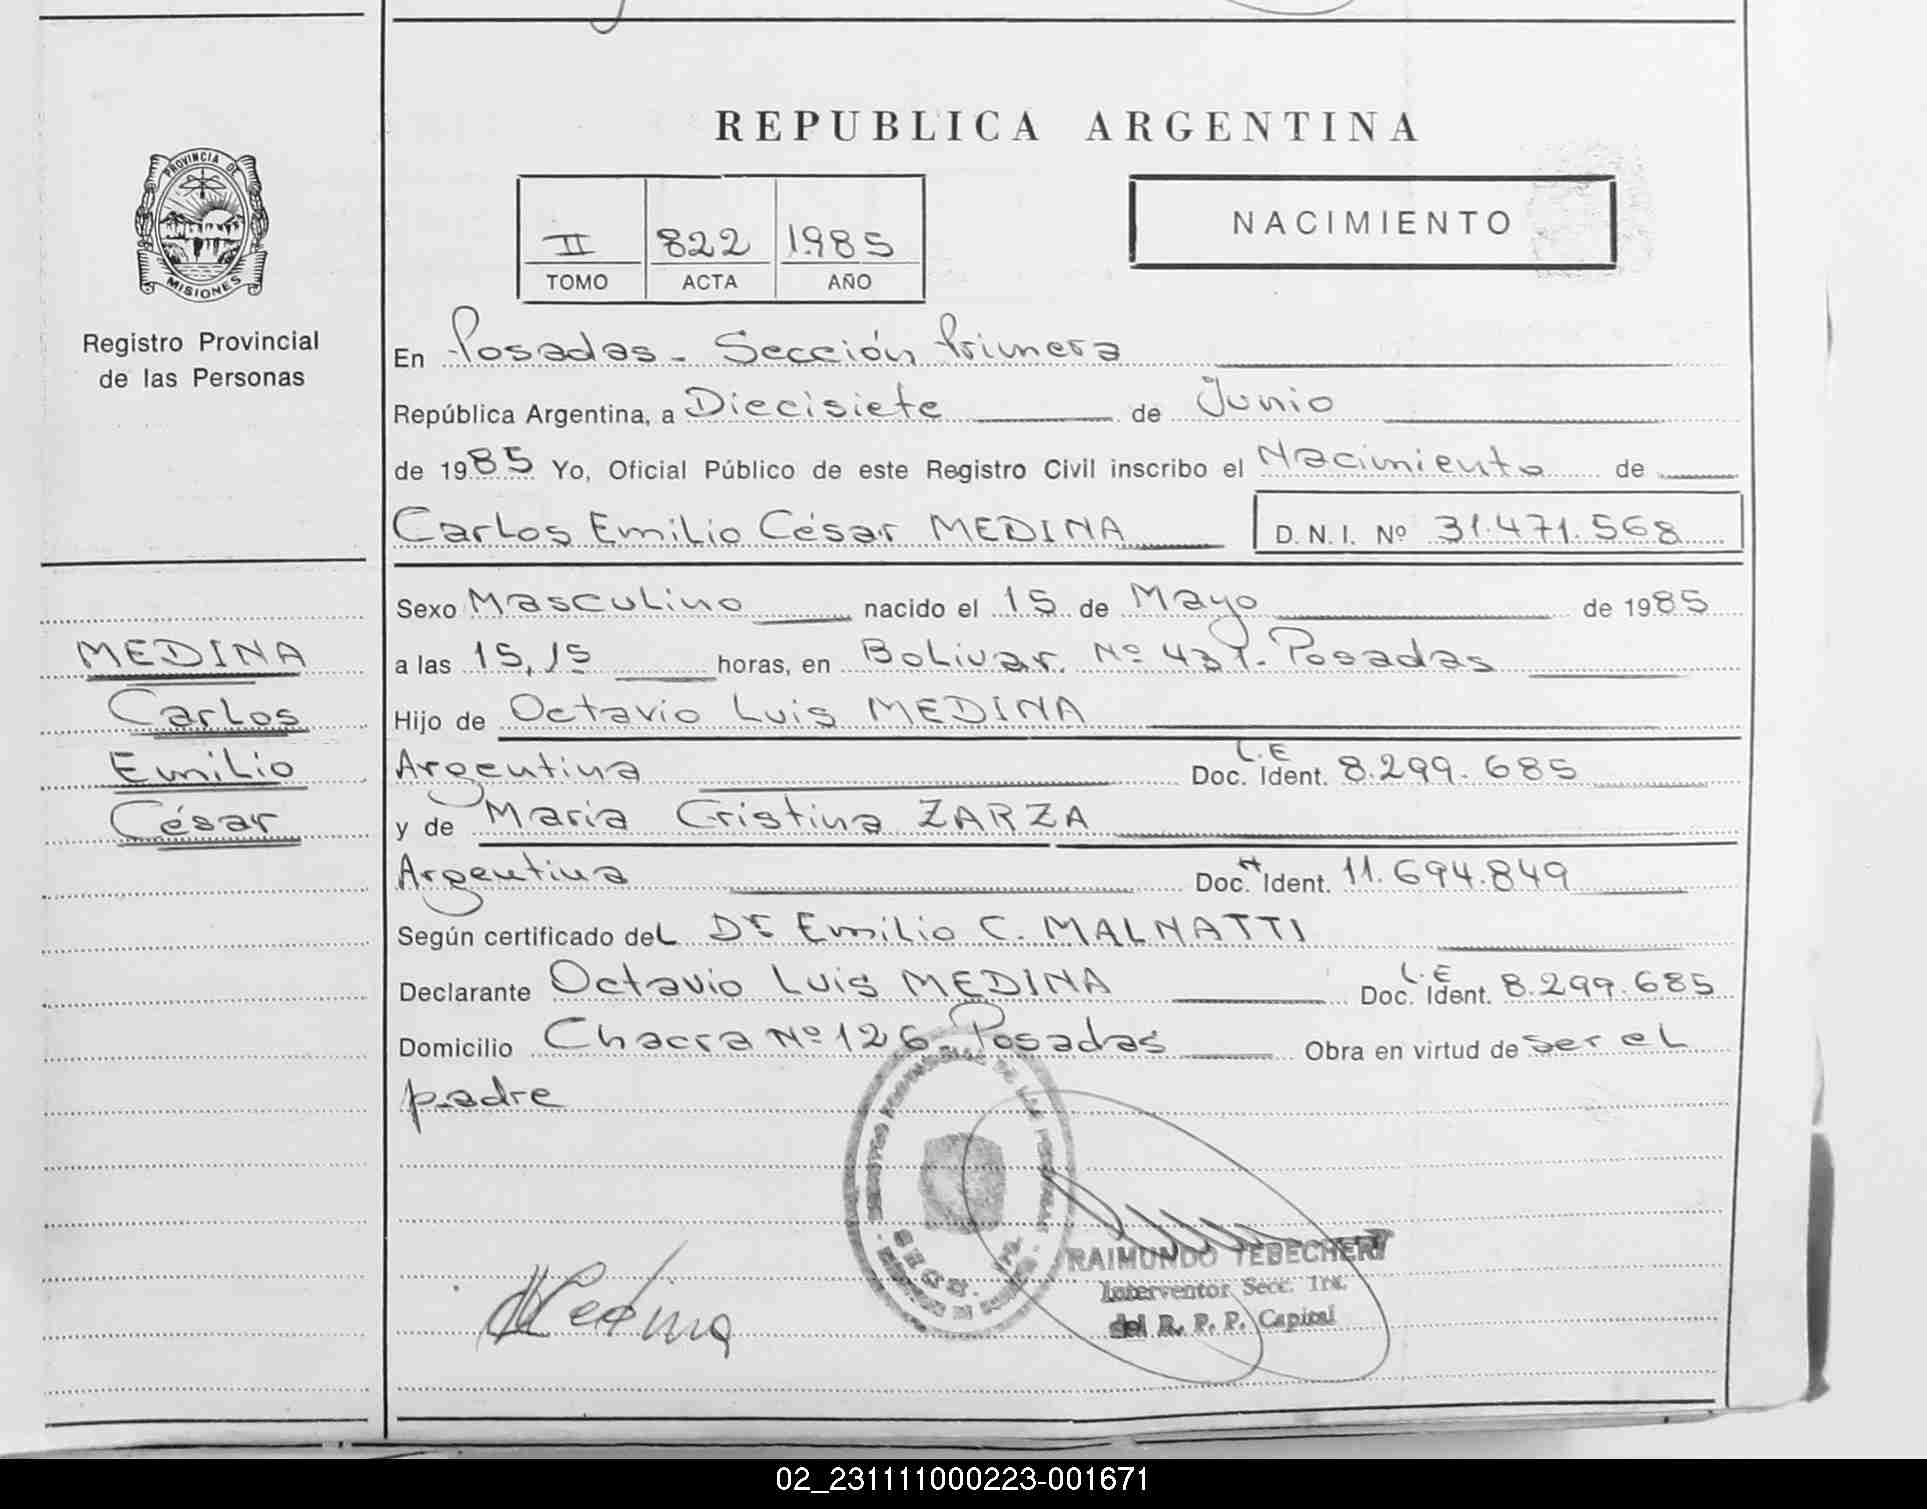 REPUBLICA ARGENTINA
PROVINCIA DE
MISIONES
Registro Provincial
de las Personas
II 822 1985
TOMO ACTA AÑO
NACIMIENTO
En Posadas - Sección Primera
República Argentina, a Diecisiete de Junio
de 1985 Yo, Oficial Público de este Registro Civil inscribo el Nacimiento de
Carlos Emilio César MEDINA D.N.I. Nº 31.471.568
Sexo Masculino nacido el 15 de Mayo de 1985
a las 15,15 horas, en Bolivar. Nº 431. Posadas
Hijo de Octavio Luis MEDINA
Argentina Doc. Ident. L.E 8.299.685
y de María Cristina ZARZA
Argentina Doc. Ident. 11.694.849
Según certificado del Dr Emilio C. MALNATTI
Declarante Octavio Luis MEDINA Doc. Ident. L.E 8.299.685
Domicilio Chacra Nº 126 Posadas Obra en virtud de ser el
padre
MEDINA
Carlos
Emilio
César
Medina
RAIMUNDO TEBECHERY
Interventor Secc. 1ra.
del R. P. P. Capital
02_231111000223-001671